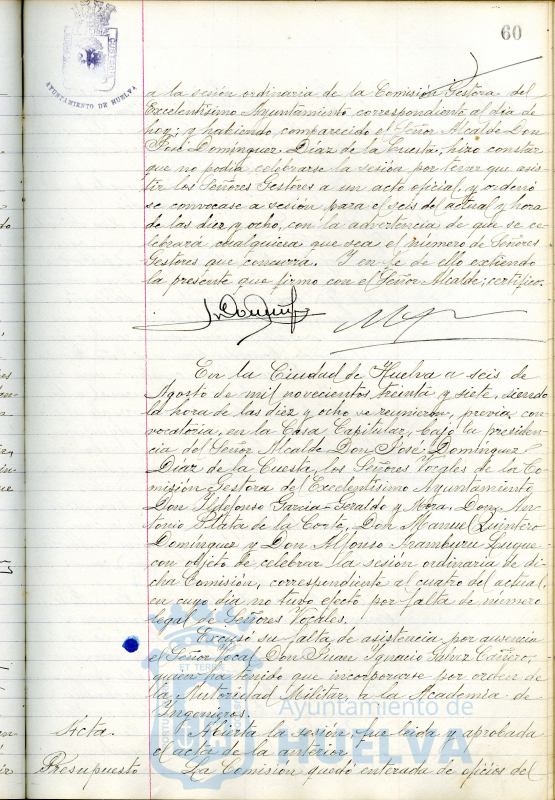 60
AYUNTAMIENTO DE HUELVA
a la sesión ordinaria de la Comisión Gestora del
Excelentísimo Ayuntamiento correspondiente al dia de
hoy; y habiendo comparecido el Señor Alcalde Don
José Dominguez Diaz de la Cuesta, hizo constar
que no podia celebrarse la sesión por tener que asis-
tir los Señores Gestores a un acto oficial, y ordenó
se convocase a sesión para el seis del actual y hora
de las diez y ocho, con la advertencia de que se ce-
lebrará cualquiera que sea el número de Señores
Gestores que concurra. Y en fé de ello extiendo
la presente que firmo con el Señor Alcalde; certifico.
En la Ciudad de Huelva a seis de
Agosto de mil novecientos treinta y siete, siendo
la hora de las diez y ocho se reunieron, previa con-
vocatoria, en la Casa Capitular, bajo la presiden-
cia del Señor Alcalde Don José Domínguez
Diaz de la Cuesta, los Señores Vocales de la Co-
misión Gestora del Excelentísimo Ayuntamiento,
Don Ildefonso Garcia-Geraldo y Mora, Don An-
tonio Plata de la Corte, Don Manuel Quintero
Domínguez y Don Alfonso Aramburu Luque
con objeto de celebrar la sesión ordinaria de di-
cha Comisión, correspondiente al cuatro del actual,
en cuyo dia no tuvo efecto por falta de número
legal de Señores Vocales.
Excusó su falta de asistencia por ausencia
el Señor Vocal Don Juan Ignacio Galvez Cañero,
quien ha tenido que incorporarse por orden de
la Autoridad Militar, a la Academia de
Ingenieros.
Acta. Abierta la sesión, fue leida y aprobada
el acta de la anterior.
Presupuesto La Comisión quedó enterada de oficios del
Ayuntamiento de
HUELVA